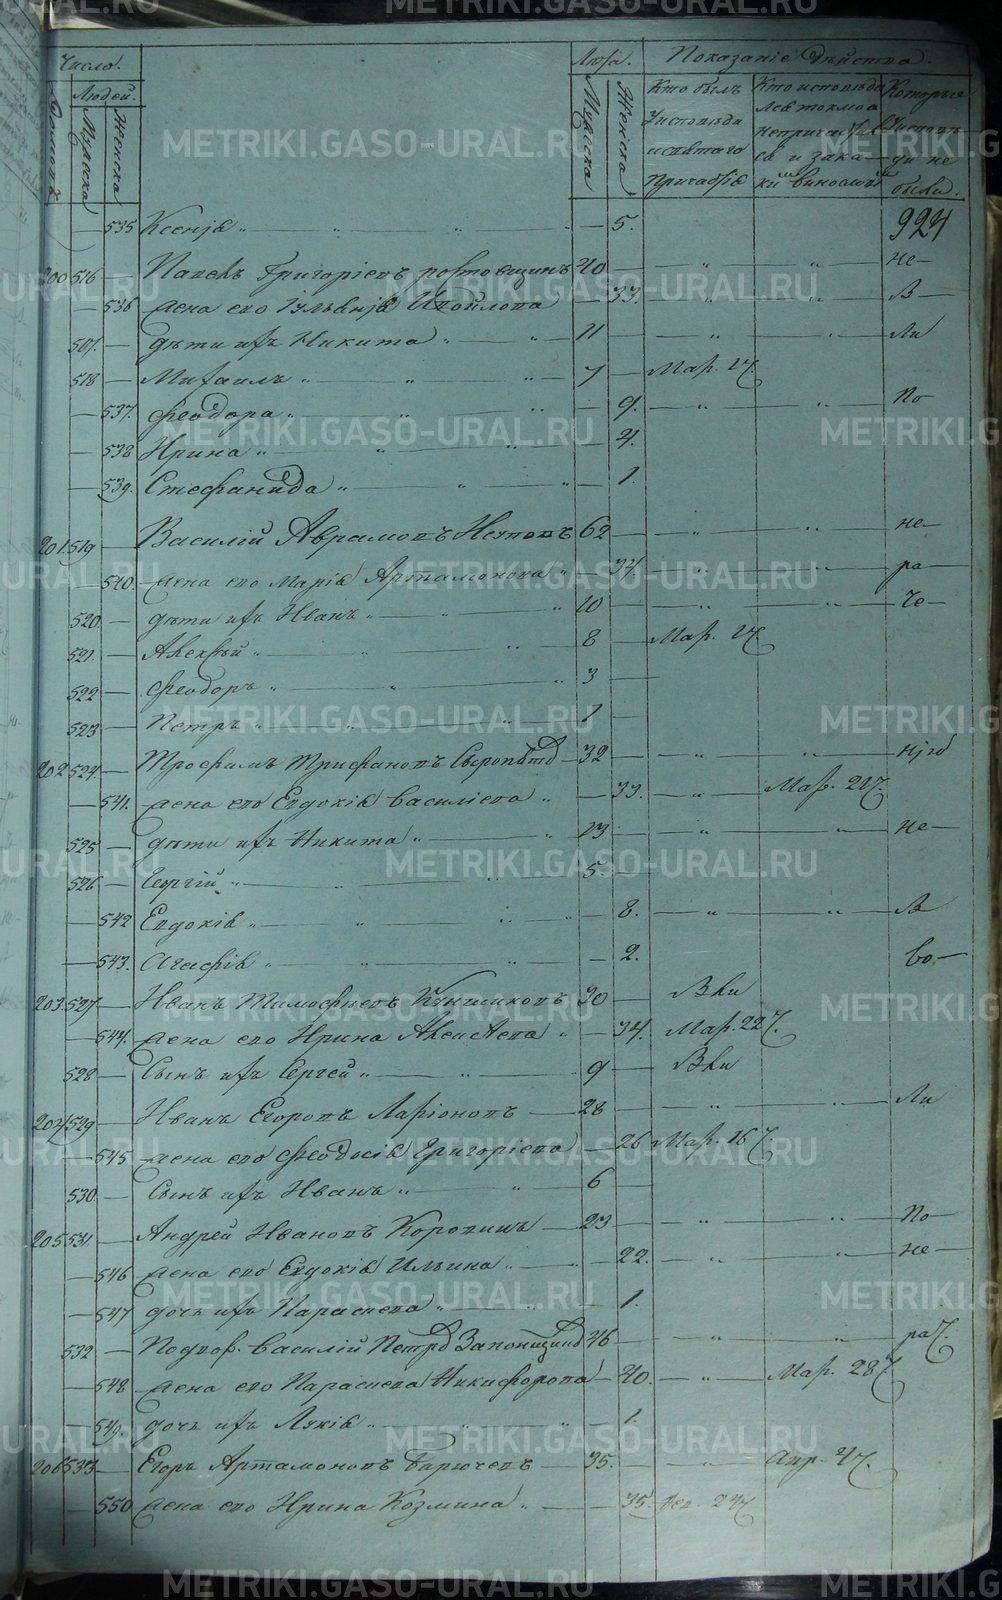 Число. Лѣта. Показаніе дѣйства.
Домовъ Людей. Мужеска Женска Мужеска Женска
Кто былъ у исповѣди и святаго Причастія
Кто исповѣда лся токмо а не причас и зака ки виновным
Которые у исповѣ ди не были.
535 Ксенія " " " 5. 924
200 516 Павелъ Григоріевъ 40 " " не
536 жена его Іуліанія 33. " " В
517. дѣти ихъ Никита " " 11 " " ли
518 Михаилъ " " " 7 Мар. 17.
537. Феодора " " " 9. " " По
538 Ирина " " " 4.
539. Стефанида " " " 1.
201 519 Василій Аврамовъ 62 " " не
540. жена его Марія Артамонова " 37 " " ра
520. дѣти ихъ Иванъ " " 10 " " че
521. Алексѣй " " " 8 Мар. 17.
522 Феодоръ " " " 3
523 Петръ " " " 1
202 524. Трофимъ Трифановъ 32 " " нія
541. жена его Евдокія Василіева " 33. " Мар. 217.
525 дѣти ихъ Никита " " 13 " " не
526 Георгій " " " 5.
542 Евдокія " " " " 8. " " В
543. Агафія " " " 2. во
203. 527 Иванъ Тимофѣевъ 30 Вли
544. жена его Ирина " 34. Мар. 227.
528 Сынъ ихъ Сергей " " 9 Вли
204 529 Иванъ Егоровъ Ларіоновъ 28 " " Ли
545 жена его Феодосія Григоріева 26 Мар. 167.
530. Сынъ ихъ Иванъ " " 6
205 531 Андрей Ивановъ Коровинъ 23 " " По
546 жена его Евдокія Ильина " " 22. " " не
547 дочь ихъ Параскева " " 1.
532 Подвор. Василій Петровъ 46 " " ра
548 жена его Параскева Никифорова 40. " Мар. 287
549. дочь ихъ " " " 1.
206 533 Егоръ Артамоновъ Бирючевъ 35. " Апр. 47.
550 жена его Ирина Козмина " 35. 247
METRIKI.GASO-URAL.RU